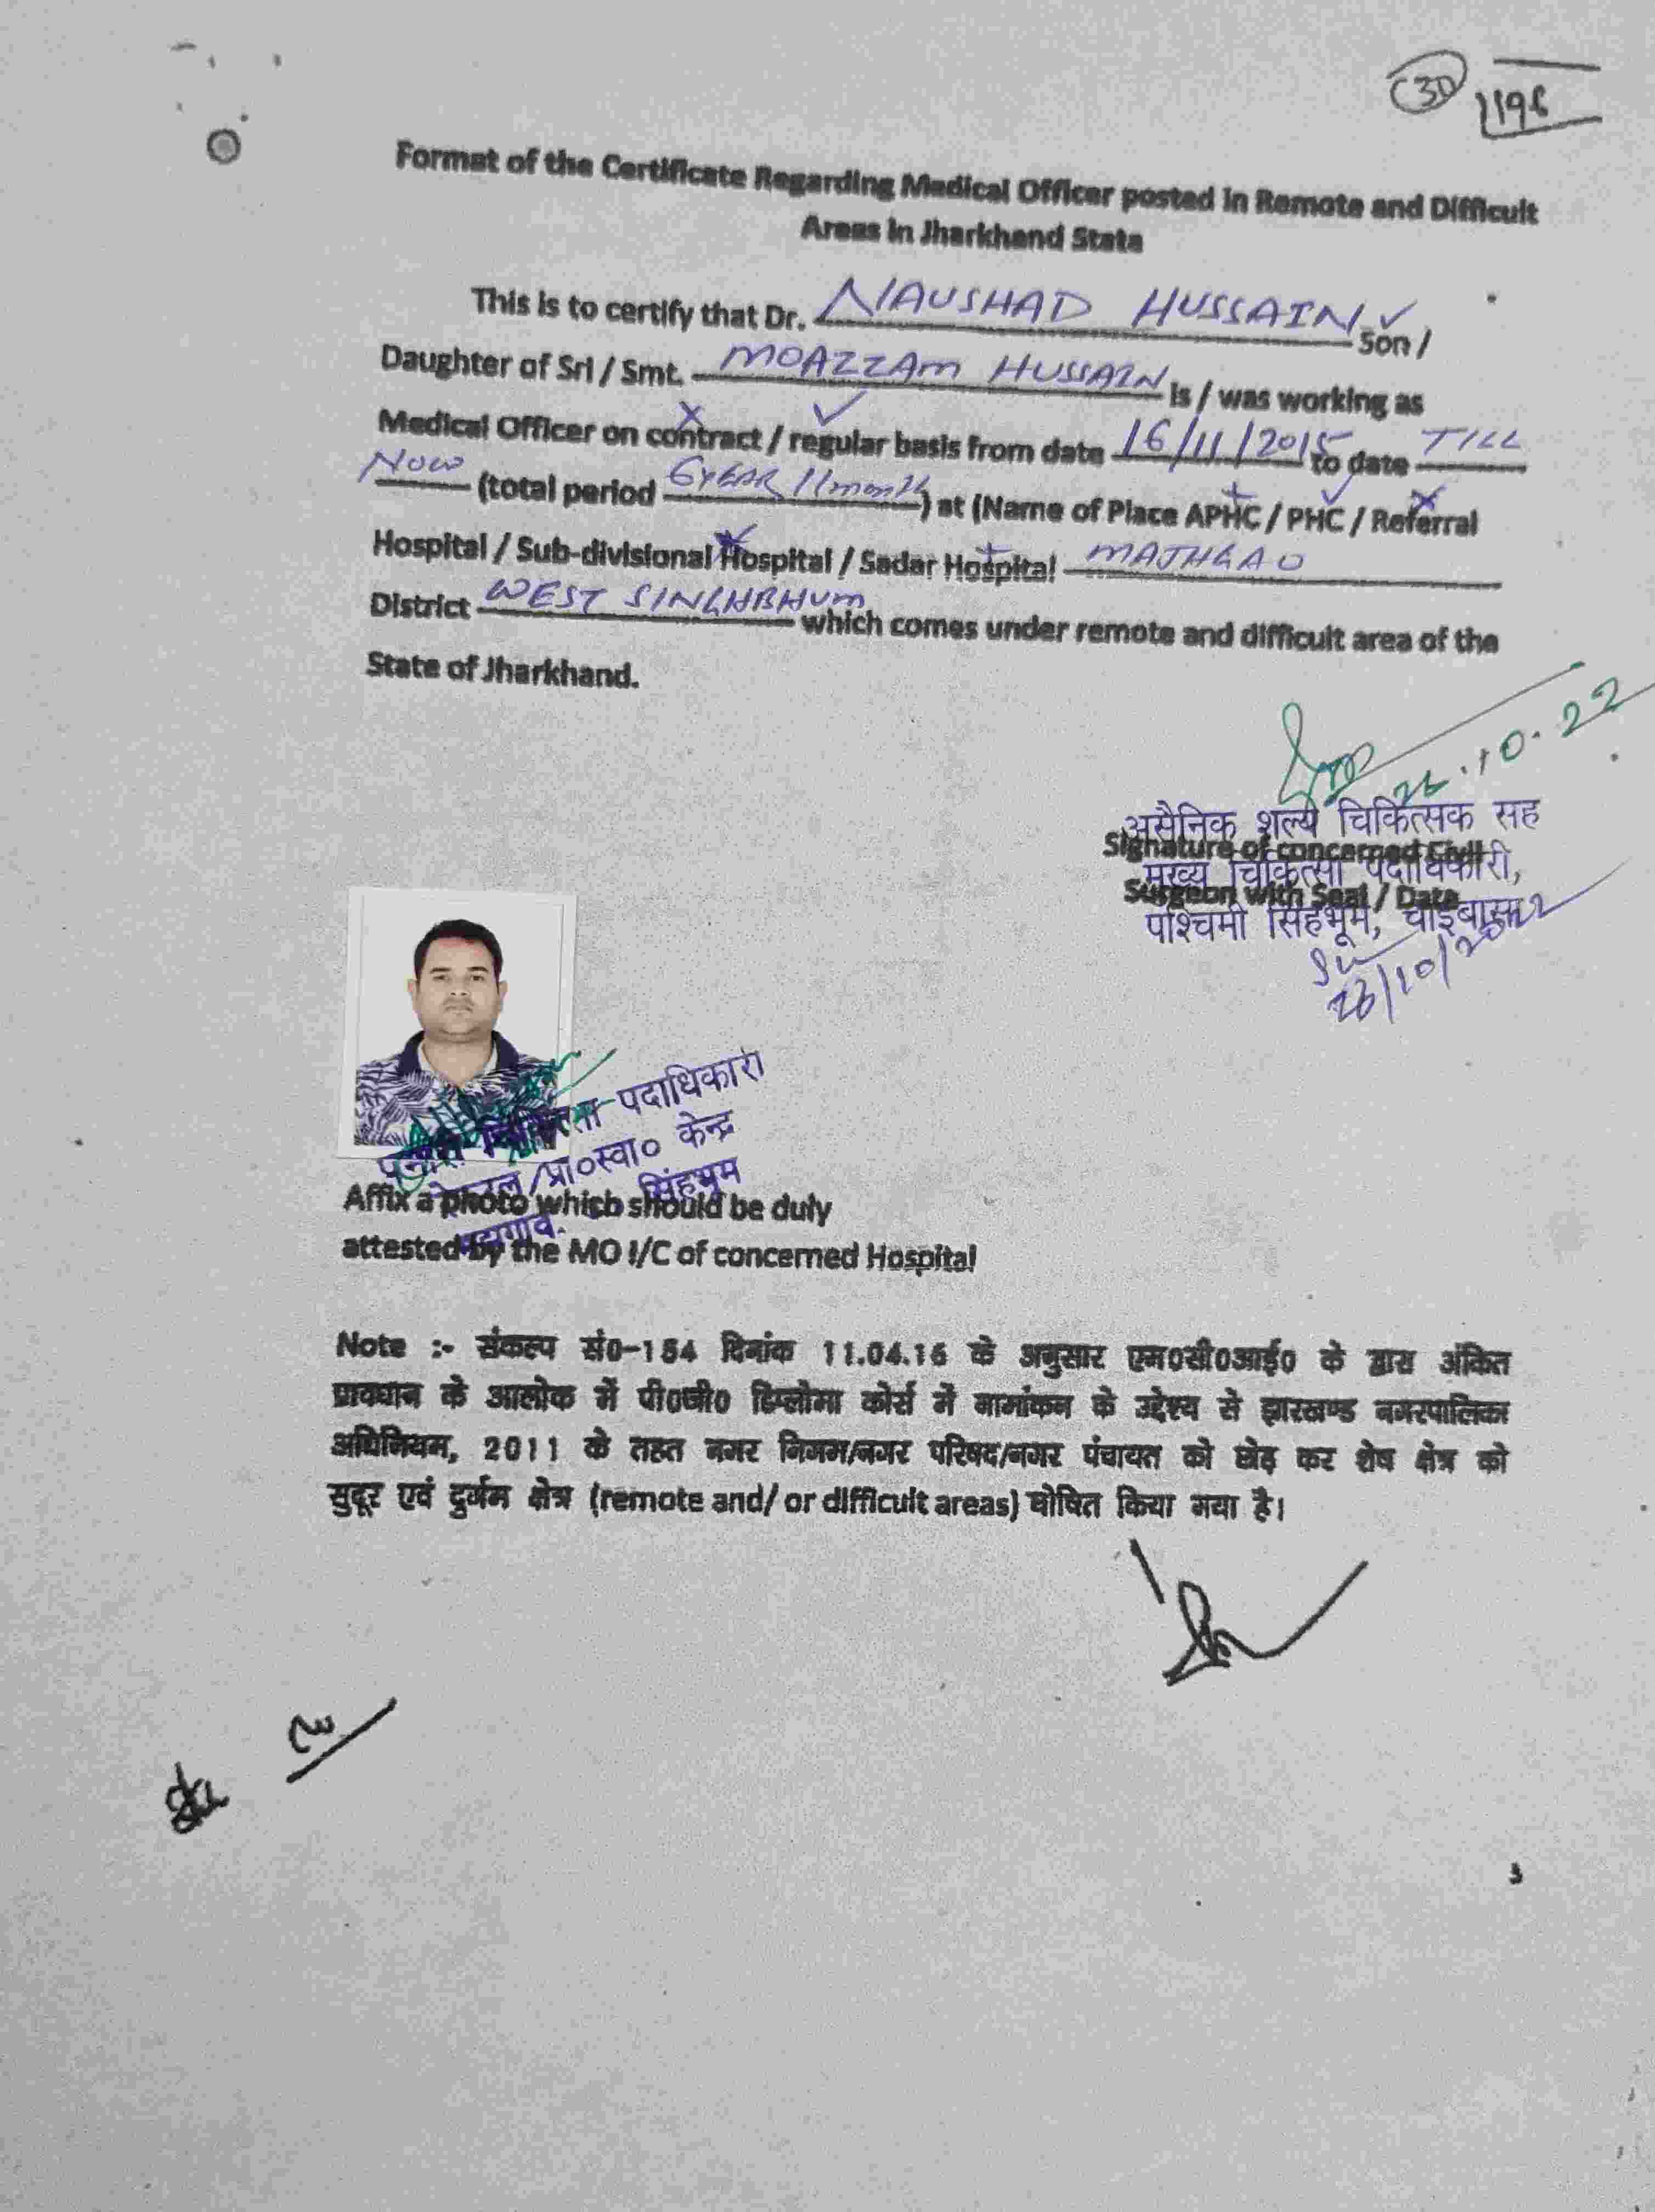 30
1196
Format of the Certificate Regarding Medical Officer posted in Remote and Difficult
Areas in Jharkhand State
This is to certify that Dr. NAUSHAD HUSSAIN ✓ Son /
Daughter of Sri / Smt. MOAZZAM HUSSAIN is / was working as
Medical Officer on contract / regular basis from date 16/11/2015 to date TILL
NOW (total period 6YEAR 11month) at (Name of Place APHC / PHC / Referral
Hospital / Sub-divisional Hospital / Sadar Hospital MAJHGAO
District WEST SINGHBHUM which comes under remote and difficult area of the
State of Jharkhand.
26.10.22
असैनिक शल्य चिकित्सक सह
Signature of concerned Civil
मुख्य चिकित्सा पदाधिकारी,
Surgeon with Seal / Date
पश्चिमी सिंहभूम, चाईबासा
पदाधिकारी
/प्रा०स्वा० केन्द्र
सिंहभूम
Affix a photo which should be duly
attested by the MO I/C of concerned Hospital
Note :- संकल्प सं0-154 दिनांक 11.04.16 के अनुसार एम0सी0आई0 के द्वारा अंकित
प्रावधान के आलोक में पी0जी0 डिप्लोमा कोर्स में नामांकन के उद्देश्य से झारखण्ड नगरपालिका
अधिनियम, 2011 के तहत नगर निगम/नगर परिषद/नगर पंचायत को छोड़ कर शेष क्षेत्र को
सुदूर एवं दुर्गम क्षेत्र (remote and/ or difficult areas) घोषित किया गया है।
3